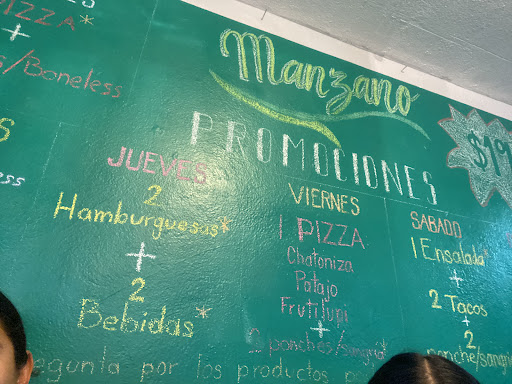 Manzano
PROMOCIONES
$19
PIZZA*
+
/Boneless
JUEVES
2
Hamburguesas*
+
2
Bebidas*
VIERNES
1 PIZZA
Chatoniza
Patajo
Frutilupi
+
2 ponches/sangria*
SABADO
1 Ensalada*
+
2 Tacos
+
2
ponche/sangria
regunta por los productos